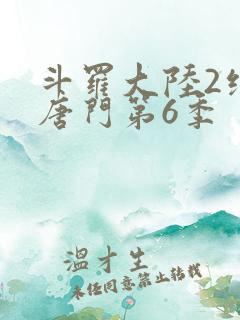 斗羅大陸2
唐門第6季
溫才生
未任同意禁止转载